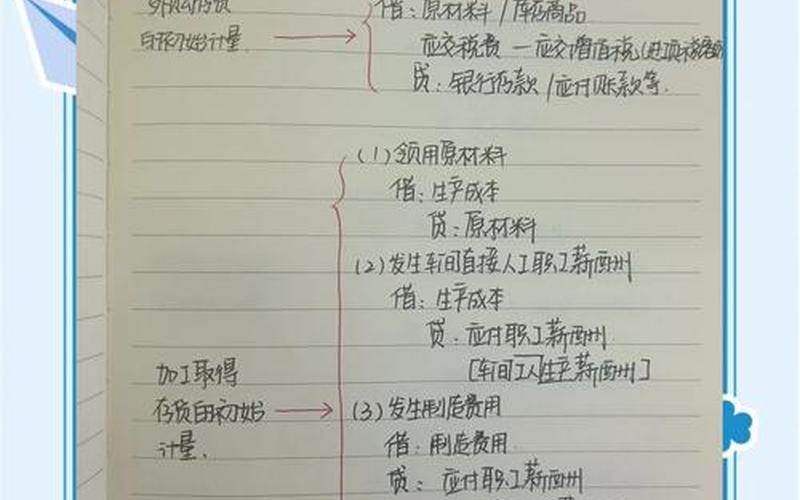 外购存货
的初始计量
借：原材料/库存商品
应交税费—应交增值税(进项税额)
贷：银行存款/应付账款等.
(1)领用原材料
借：生产成本
贷：原材料
(2)发生车间直接人工职工薪酬
借：生产成本
贷：应付职工薪酬
[车间工人生产薪酬]
加工取得
存货的初始
计量.
(3)发生制造费用
借：制造费用
贷：应付职工薪酬